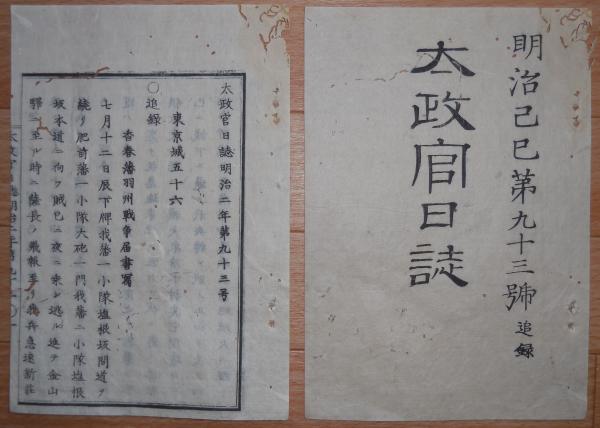 明治己巳第九十三號 追録
太政官日誌
太政官日誌明治二年第九十三号
東京城五十六
○追録
香春藩羽州戦争届書寫
七月十二日辰下牌我藩一小隊塩根坂間道ヲ
繞リ肥前藩一小隊大砲一門我藩二小隊塩根
坂本道ニ向フ賊已ニ夜ニ乗シ逃ル進テ金山
驛ニ至ル時ニ薩長ノ飛報至リ我兵急速新荘